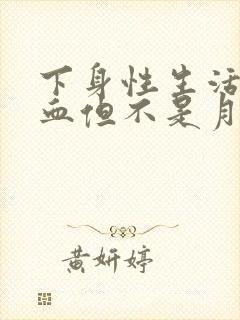 下身性生活
血但不是月
黄妍婷